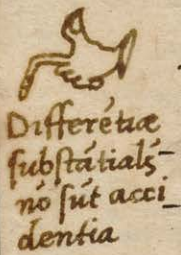 Differe̅tiæ
substa̅tial̃s
no̅ su̅t acci_
dentia